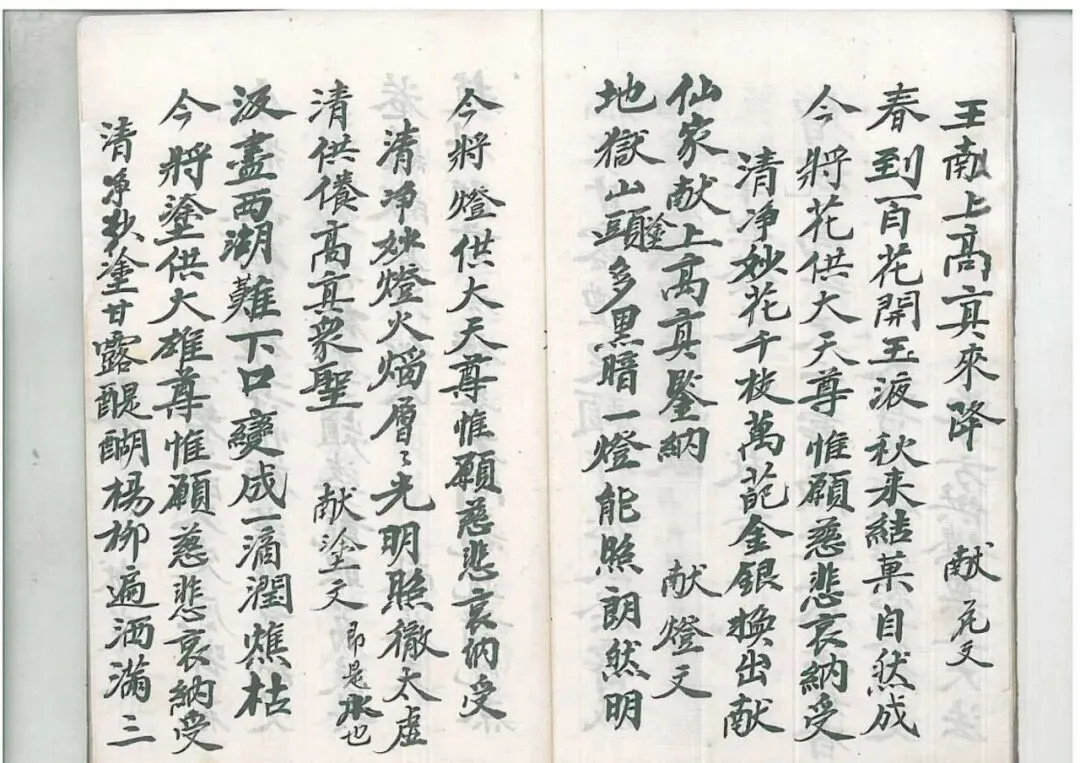 王献上高真來降 献花文
春到百花開玉液秋来結菓自然成
今將花供大天尊惟願慈悲哀納受
清净妙花千枝萬葩金銀換出献
仙家献上高真鑒納 献燈文
地獄山頭多黑暗一燈能照朗然明
今將燈供大天尊惟願慈悲哀納受
清净妙燈火焰層々光明照徹太虛
清供養高真衆聖 献塗文 即是水也
汲盡西湖難下口變成一滴潤燋枯
今將塗供大雄尊惟願慈悲哀納受
清净妙塗甘露醍醐楊柳遍洒滿三